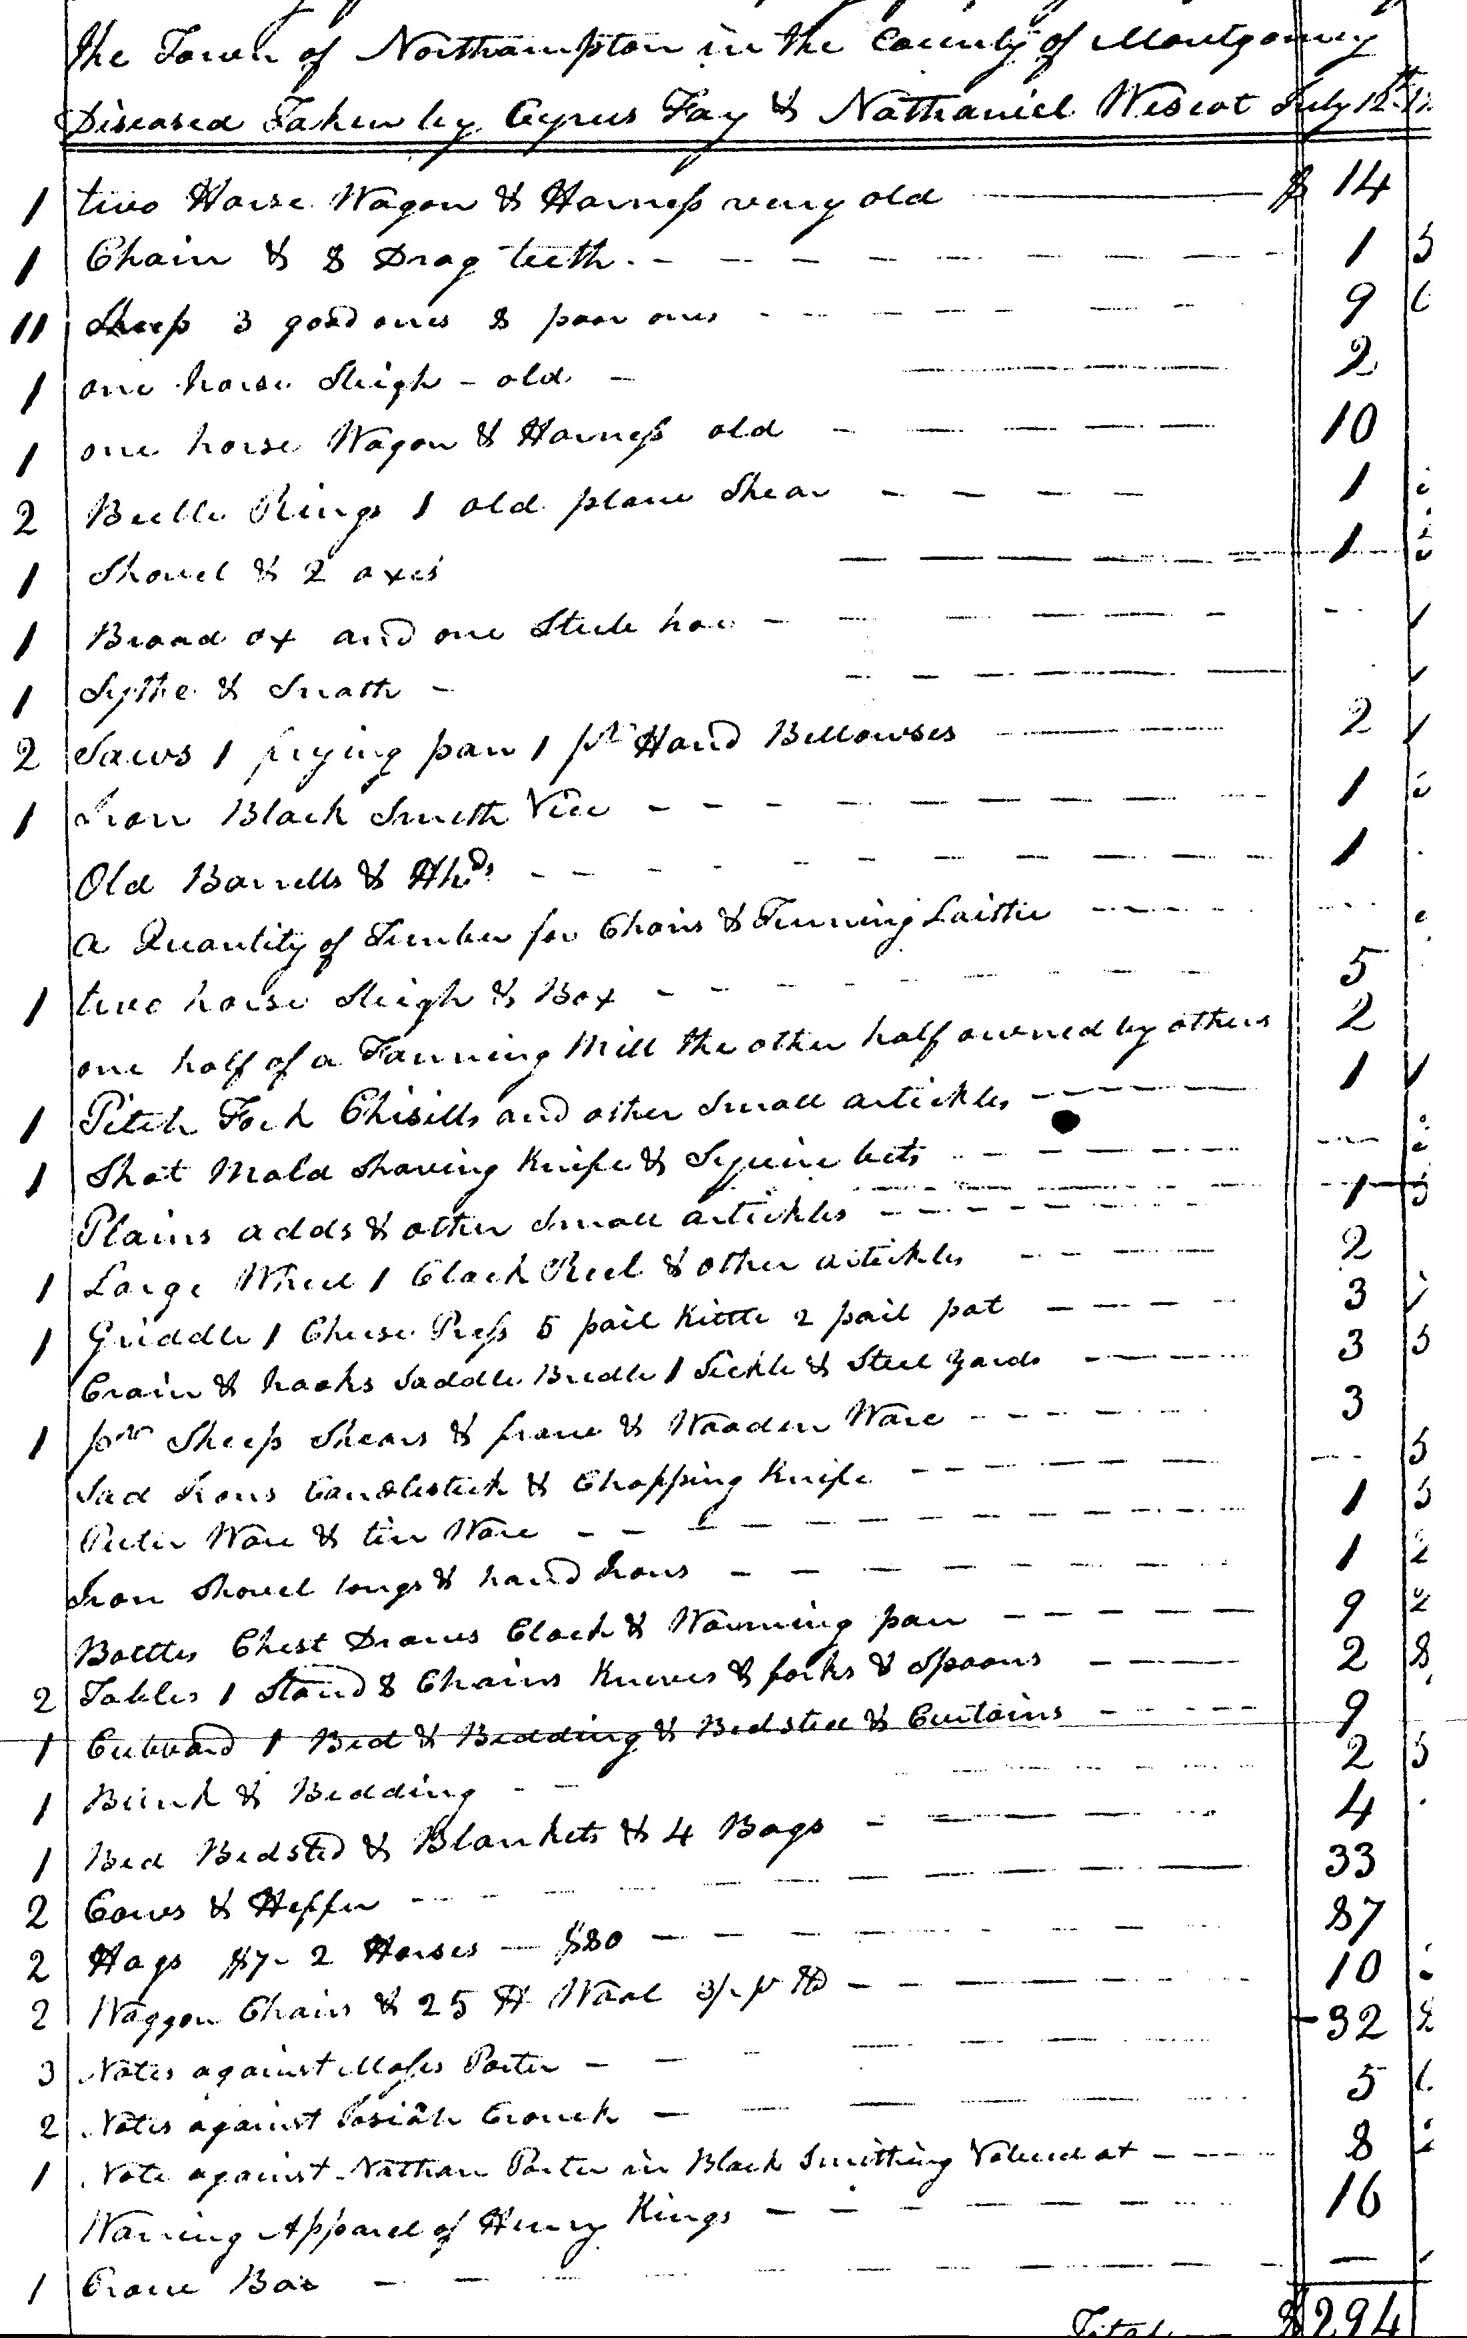 the Town of Northampton in the County of Montgomery
Diseased Taken by Cyrus Fay & Nathaniel Wescot July 12th
1 two Horse Wagon & Harness very old $ 14
1 Chain & 8 Drag teeth 1 5
11 Sheep 3 good ones 8 poor ones 9
1 one horse Sleigh - old - 2
1 one horse Wagon & Harness old 10
2 Beetle Rings 1 old plane Shear 1
1 Shovel & 2 axes 1
1 Broad ax and one Steele hoe
1 Sythe & Snath
2 Saws 1 frying pan 1 pr Hand Bellowses 2
1 Iron Black Smith Vice 1
Old Barrells & Hhds 1
a Quantity of Timber for Chairs & Turning Laithe
1 two horse Sleigh & Box 5
one half of a Fanning Mill the other half owned by others 2
1 Pitch Fork Chisills and other Small artickles 1
1 Shot Mold Shaving Knife & bits
Plains adds & other Small artickles 1 5
1 Large Wheel 1 Clock Reel & other artickles 2
1 Griddle 1 Cheese Press 5 pail Kittle 2 pail pot 3
Crain & hooks Saddle Bridle 1 Sickle & Steel yards 3 5
1 pr Sheep Shears & frame & Wooden Ware 3
Sad Irons Candlestick & Chopping Knife 5
Puter Ware & tin Ware 1 5
Iron Shovel tongs & hand Irons 1 2
Bottles Chest Draws Clock & Warming pan 9 2
2 Tables 1 Stand 8 Chairs Knives & forks & Spoons 2 8
1 Cubbard 1 Bed & Bedding & Bedsted & Curtains 9
1 Bunk & Bedding 2 5
1 Bed Bedsted & Blankets & 4 Bags 4
2 Cows & Heffer 33
2 Hogs $7- 2 Horses - $80 87
2 Waggon Chairs & 25 lb Wool 3/- pr lb 10
3 Notes against Moses Porter 32
2 Notes against Josiah Crouch 5
1 Note against Nathan Porter in Black Smithing Valued at 8
Waring Apparel of Henry Kings 16
1 Crow Bar
Total $ 294